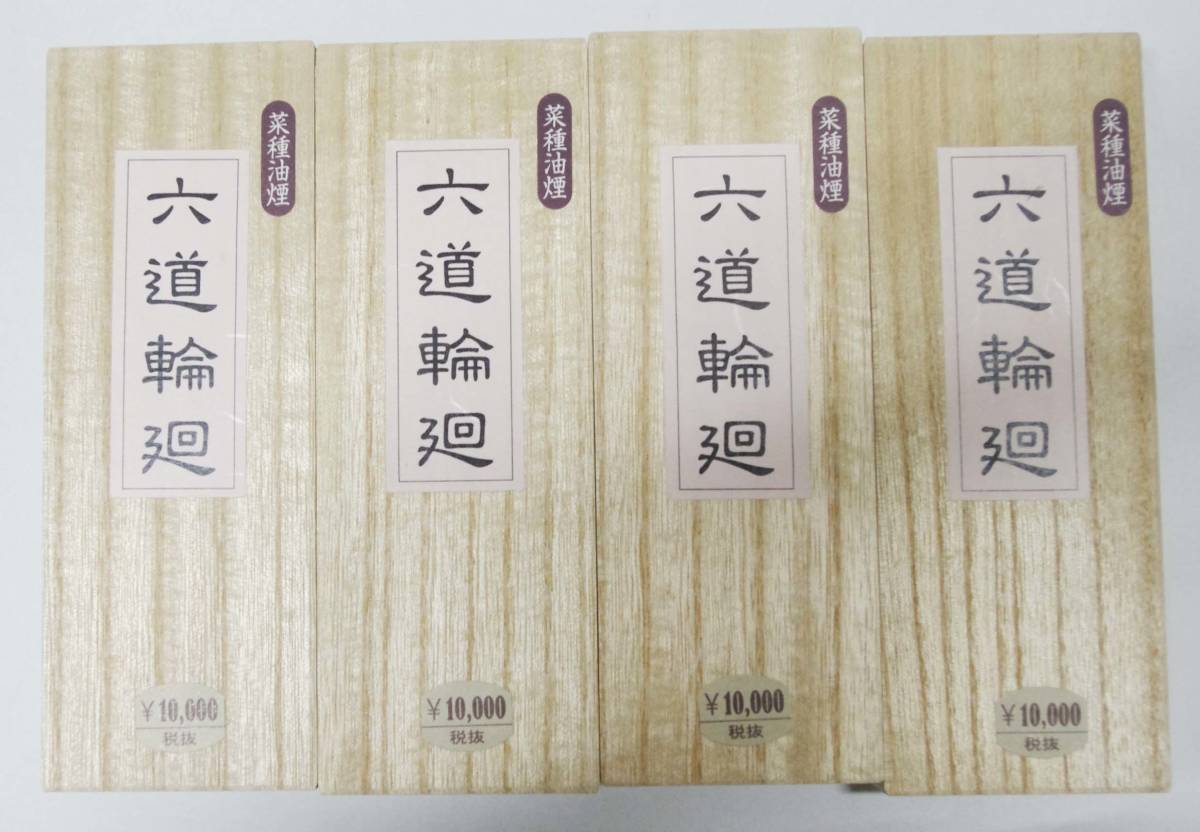 菜種油煙
六道輪廻
¥10,000
税抜
菜種油煙
六道輪廻
¥10,000
税抜
菜種油煙
六道輪廻
¥10,000
税抜
菜種油煙
六道輪廻
¥10,000
税抜